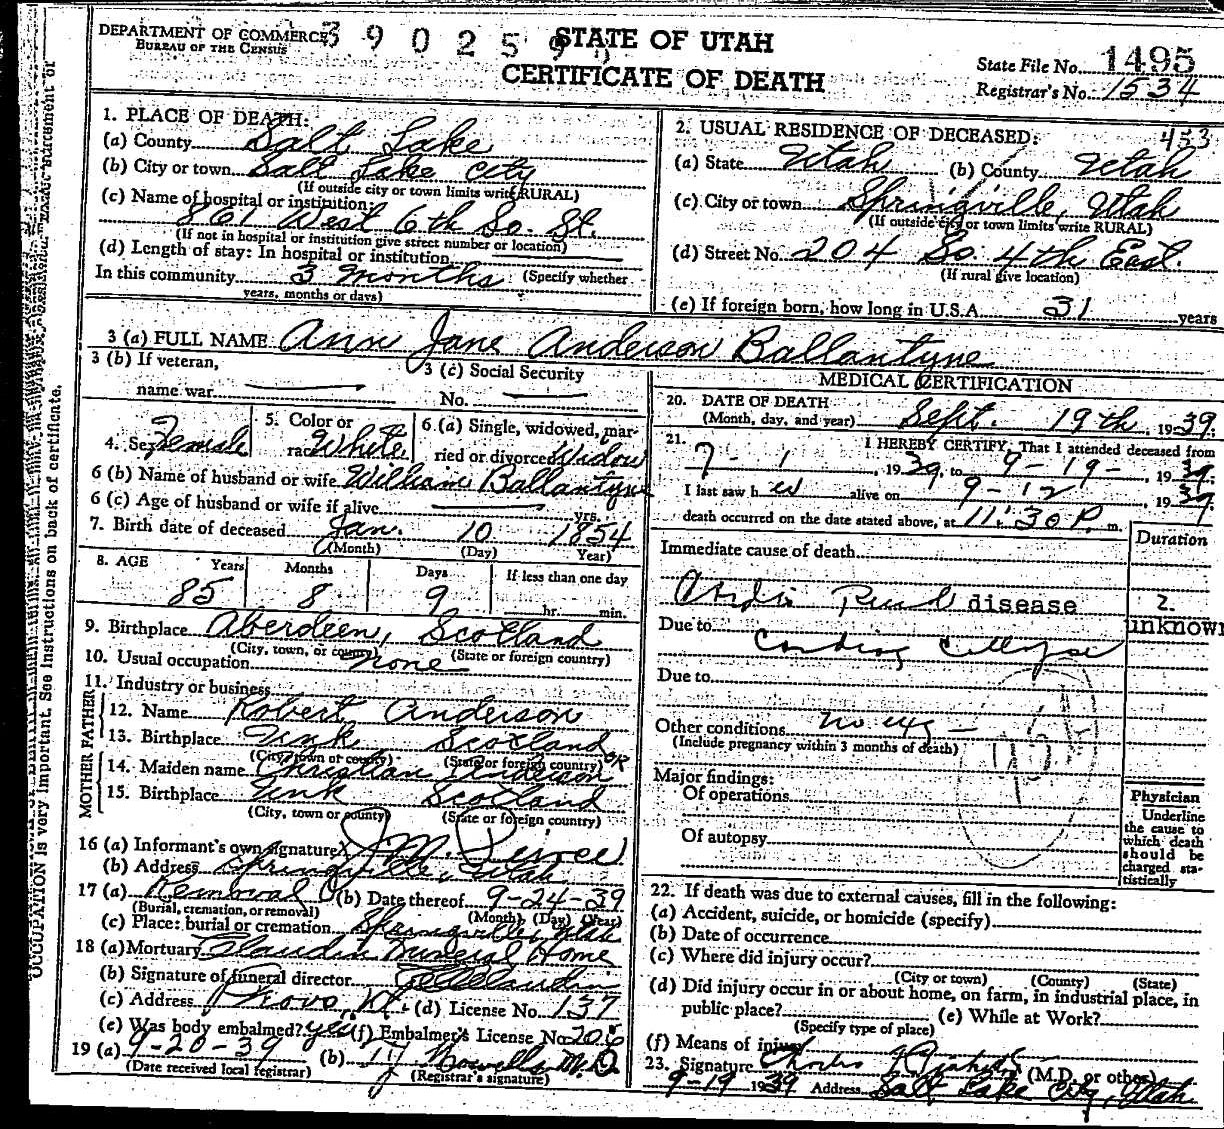 DEPARTMENT OF COMMERCE
BUREAU OF THE CENSUS
3 9 0 2 5 9
STATE OF UTAH
CERTIFICATE OF DEATH
State File No. 1495
Registrar's No. 1534
1. PLACE OF DEATH:
(a) County Salt Lake
(b) City or town Salt Lake City
(If outside city or town limits write RURAL)
(c) Name of hospital or institution:
861 West 6th So. St.
(If not in hospital or institution give street number or location)
(d) Length of stay: In hospital or institution
In this community 3 months (Specify whether
years, months or days)
2. USUAL RESIDENCE OF DECEASED: 453
(a) State Utah (b) County Utah
(c) City or town Springville, Utah
(If outside city or town limits write RURAL)
(d) Street No. 204 So. 4th East.
(If rural give location)
(e) If foreign born, how long in U.S.A. 31 years
3 (a) FULL NAME Ann Jane Anderson Ballantyne
3 (b) If veteran,
name war
3 (c) Social Security
No.
4. Sex Female
5. Color or
race White
6. (a) Single, widowed, mar-
ried or divorced Widow
6 (b) Name of husband or wife William Ballantyne
6 (c) Age of husband or wife if alive yrs.
7. Birth date of deceased Jan. 10 1854
(Month) (Day) Year)
8. AGE Years Months Days If less than one day
85 8 9 hr. min.
9. Birthplace Aberdeen, Scotland
(City, town, or county) (State or foreign country)
10. Usual occupation none
11. Industry or business
FATHER
12. Name Robert Anderson
13. Birthplace Unk Scotland
(City, town or county) (State or foreign country) OR
MOTHER
14. Maiden name Christian Anderson
15. Birthplace Unk Scotland
(City, town or county) (State or foreign country)
16 (a) Informant's own signature J M Peirce
(b) Address Springville, Utah
17 (a) Removal (b) Date thereof 9-24-39
(Burial, cremation, or removal) (Month) (Day) (Year)
(c) Place: burial or cremation Springville, Utah
18 (a) Mortuary Claudin Funeral Home
(b) Signature of funeral director Claudin
(c) Address Provo, Ut. (d) License No. 137
(e) Was body embalmed? yes (f) Embalmer's License No. 206
19 (a) 9-20-39 (b) M.D.
(Date received local registrar) (Registrar's signature)
MEDICAL CERTIFICATION
20. DATE OF DEATH
(Month, day, and year) Sept. 19th, 1939.
21. I HEREBY CERTIFY, That I attended deceased from
7-1, 1939, to 9-19-, 1939;
I last saw her alive on 9-12, 1939;
death occurred on the date stated above, at 11:30 P. m.
Duration
Immediate cause of death
disease 2.
unknown
Due to
Due to
Other conditions
(Include pregnancy within 3 months of death)
Major findings:
Of operations
Of autopsy
Physician
Underline
the cause to
which death
should be
charged sta-
tistically
22. If death was due to external causes, fill in the following:
(a) Accident, suicide, or homicide (specify)
(b) Date of occurrence
(c) Where did injury occur?
(City or town) (County) (State)
(d) Did injury occur in or about home, on farm, in industrial place, in
public place? (e) While at Work?
(Specify type of place)
(f) Means of injury
23. Signature Charles (M.D. or other)
9-19 1939 Address Salt Lake City, Utah.
OCCUPATION is very important. See Instructions on back of certificate.